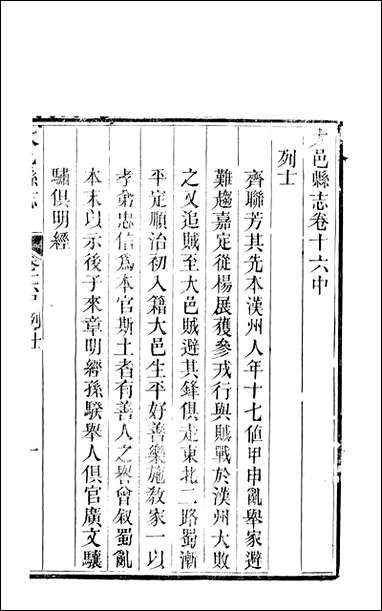 大邑縣志卷十六中
列士
齊聯芳其先本漢州人年十七値甲申亂舉家避
難趨嘉定從楊展獲參戎行與賊戰於漢州大敗
之又追賊至大邑賊避其鋒俱走東北二路蜀漸
平定順治初入籍大邑生平好善樂施敎家一以
孝弟忠信爲本官斯土者有善人之譽曾叙蜀亂
本末以示後子來章明經孫騤舉人俱官廣文驤
驌俱明經
大邑縣志
卷十六中 列士
一